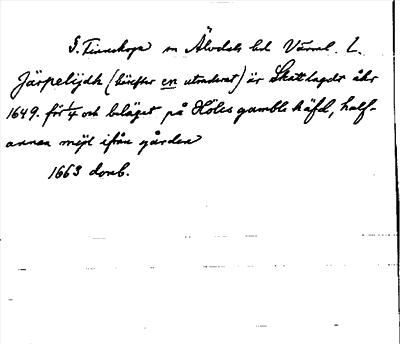 S. Finnskoga sn Älvdals hd Värml. L.
Järpelijdh (härefter en utraderat) är Skattlagdt åhr
1649. för 1/4 och beläget på Höles gamble häfd, half-
annan mijl ifrån gården
1663 domb.